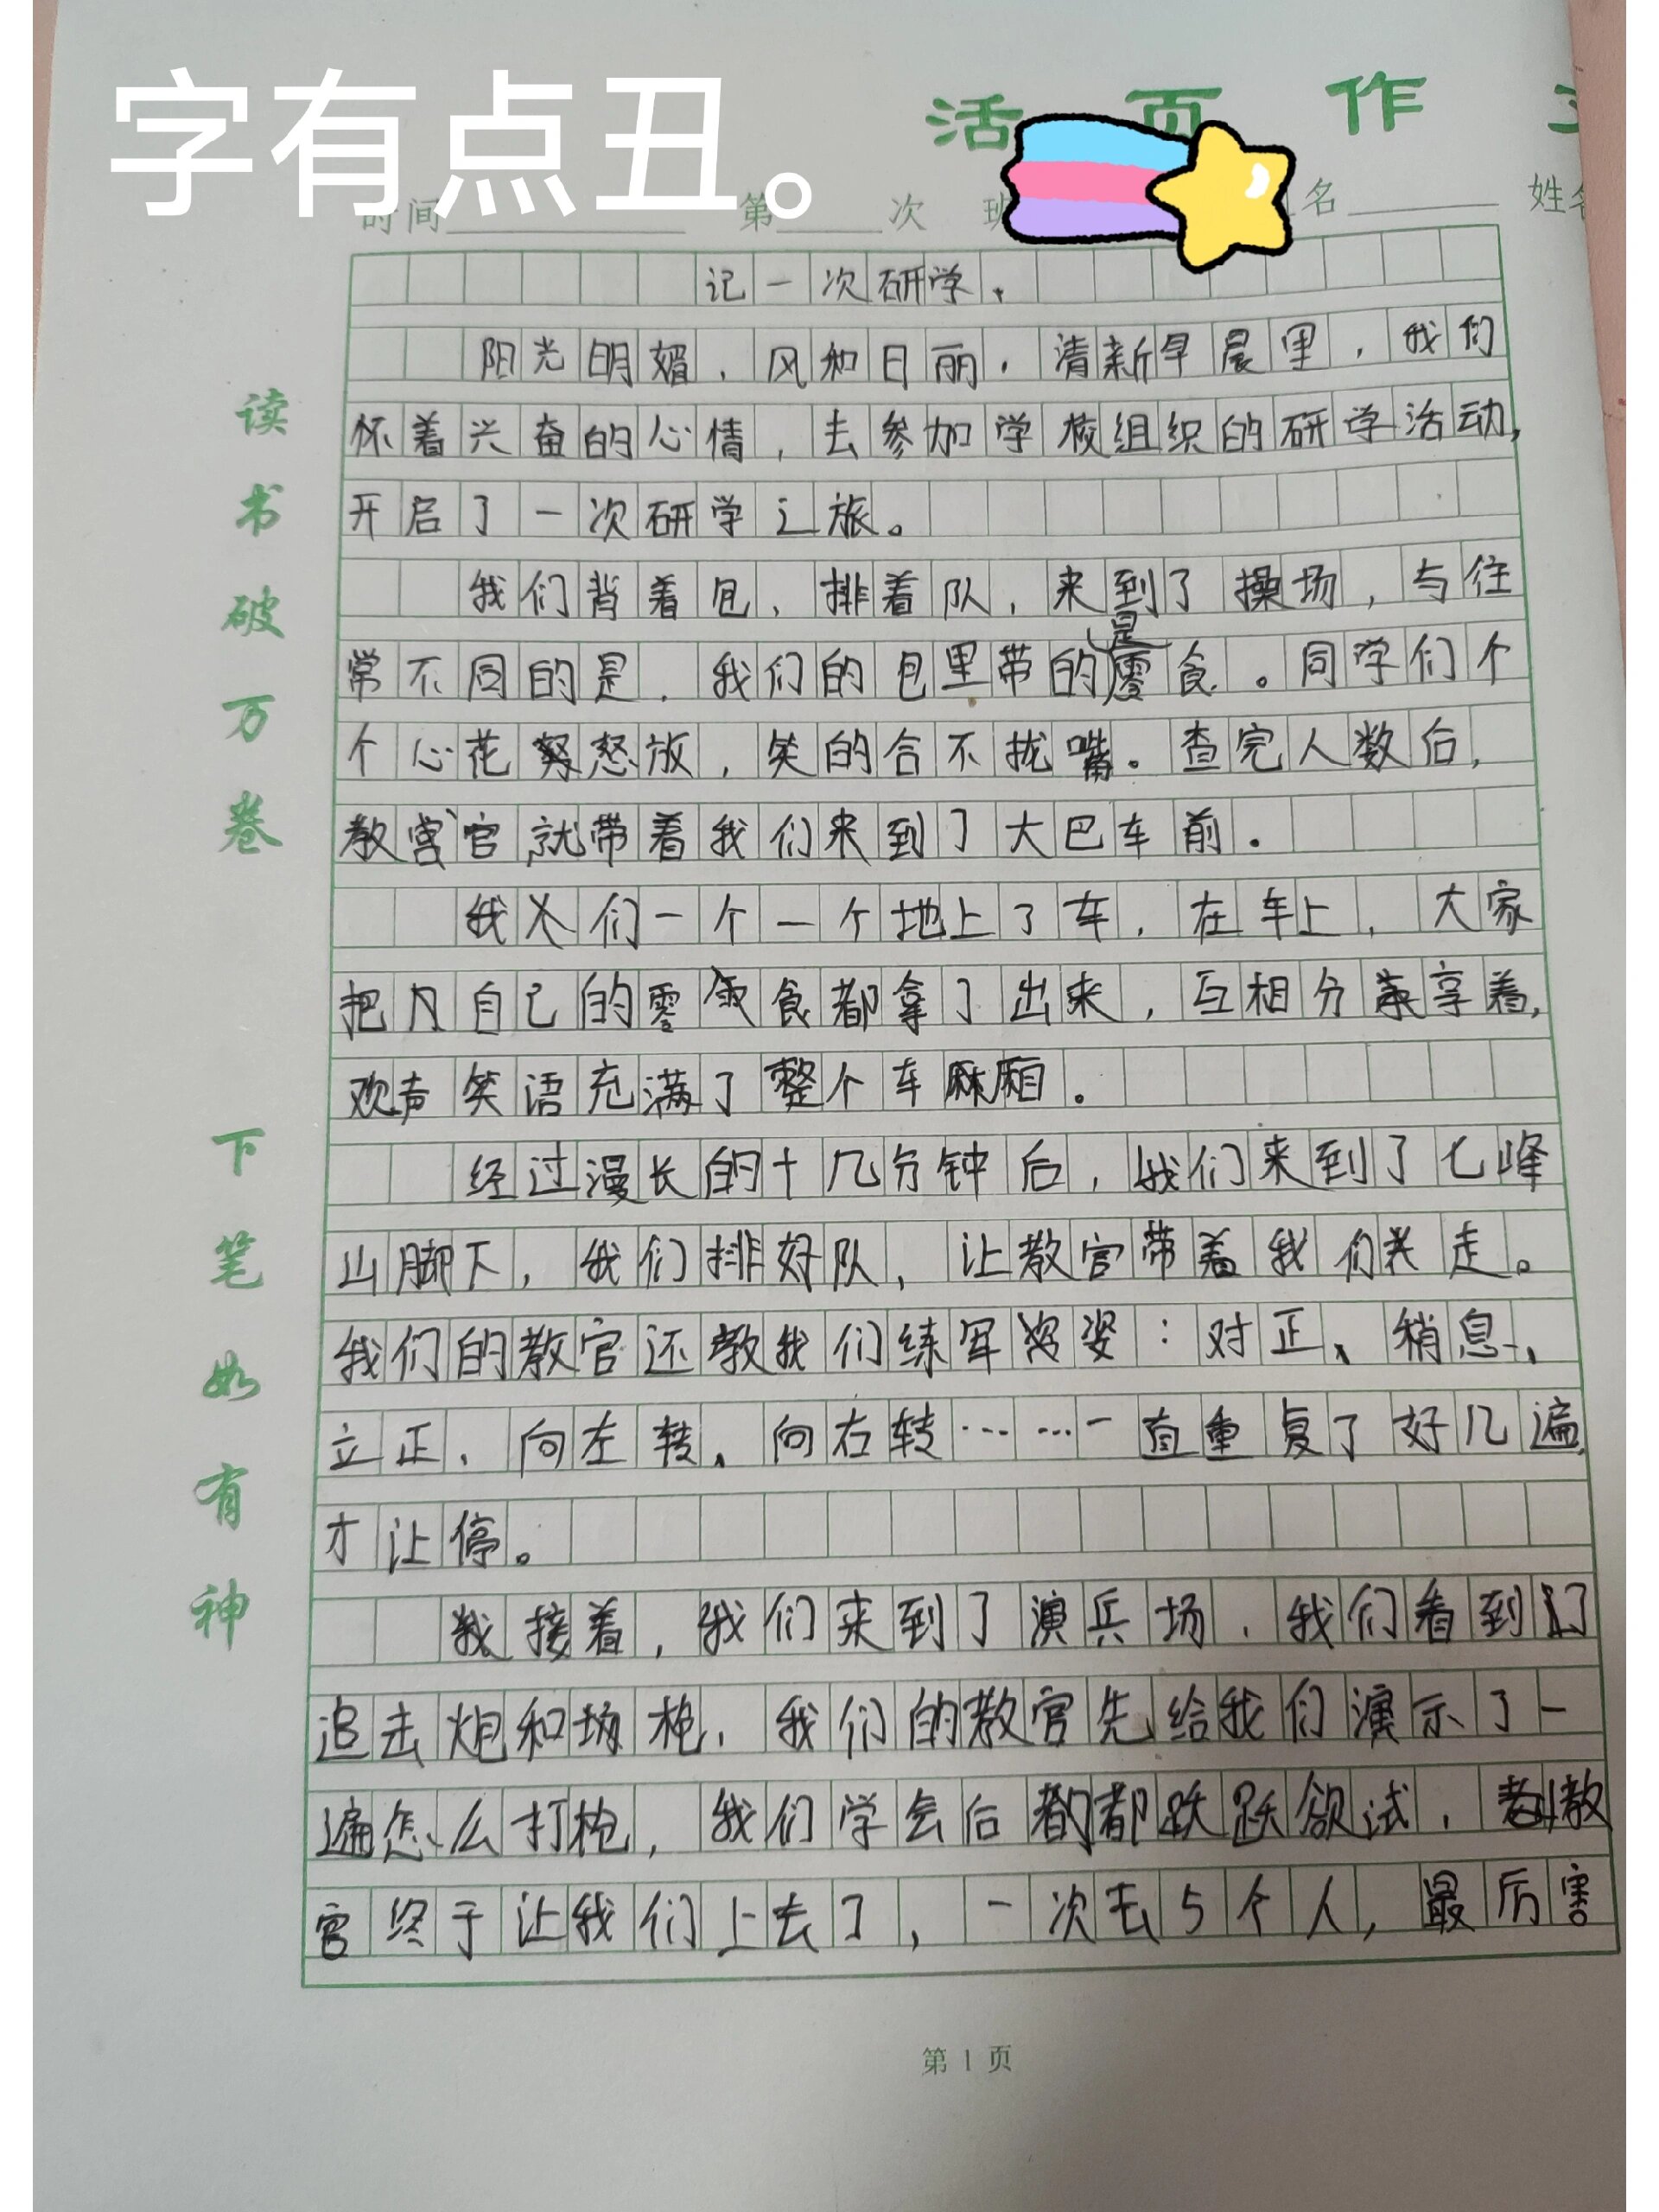 字有点丑。
活页作
时间 第 次 班 名 姓名
记一次研学。
阳光明媚，风和日丽，清新早晨里，我们
怀着兴奋的心情，去参加学校组织的研学活动，
开启了一次研学之旅。
我们背着包，排着队，来到了操场，与往
常不同的是，我们的包里带的是零食。同学们个
个心花怒放，笑的合不拢嘴。查完人数后，
教官就带着我们来到了大巴车前。
我们一个一个地上了车，在车上，大家
把自己的零食都拿了出来，互相分享着，
欢声笑语充满了整个车厢。
经过漫长的十几分钟后，我们来到了七峰
山脚下，我们排好队，让教官带着我们走。
我们的教官还教我们练军姿：对正、稍息、
立正、向左转、向右转……一直重复了好几遍，
才让停。
接着，我们来到了演兵场，我们看到了
追击炮和枪，我们的教官先给我们演示了一
遍怎么打枪，我们学会后都跃跃欲试，教
官终于让我们上去了，一次去5个人，最厉害
读书破万卷
下笔如有神
第1页